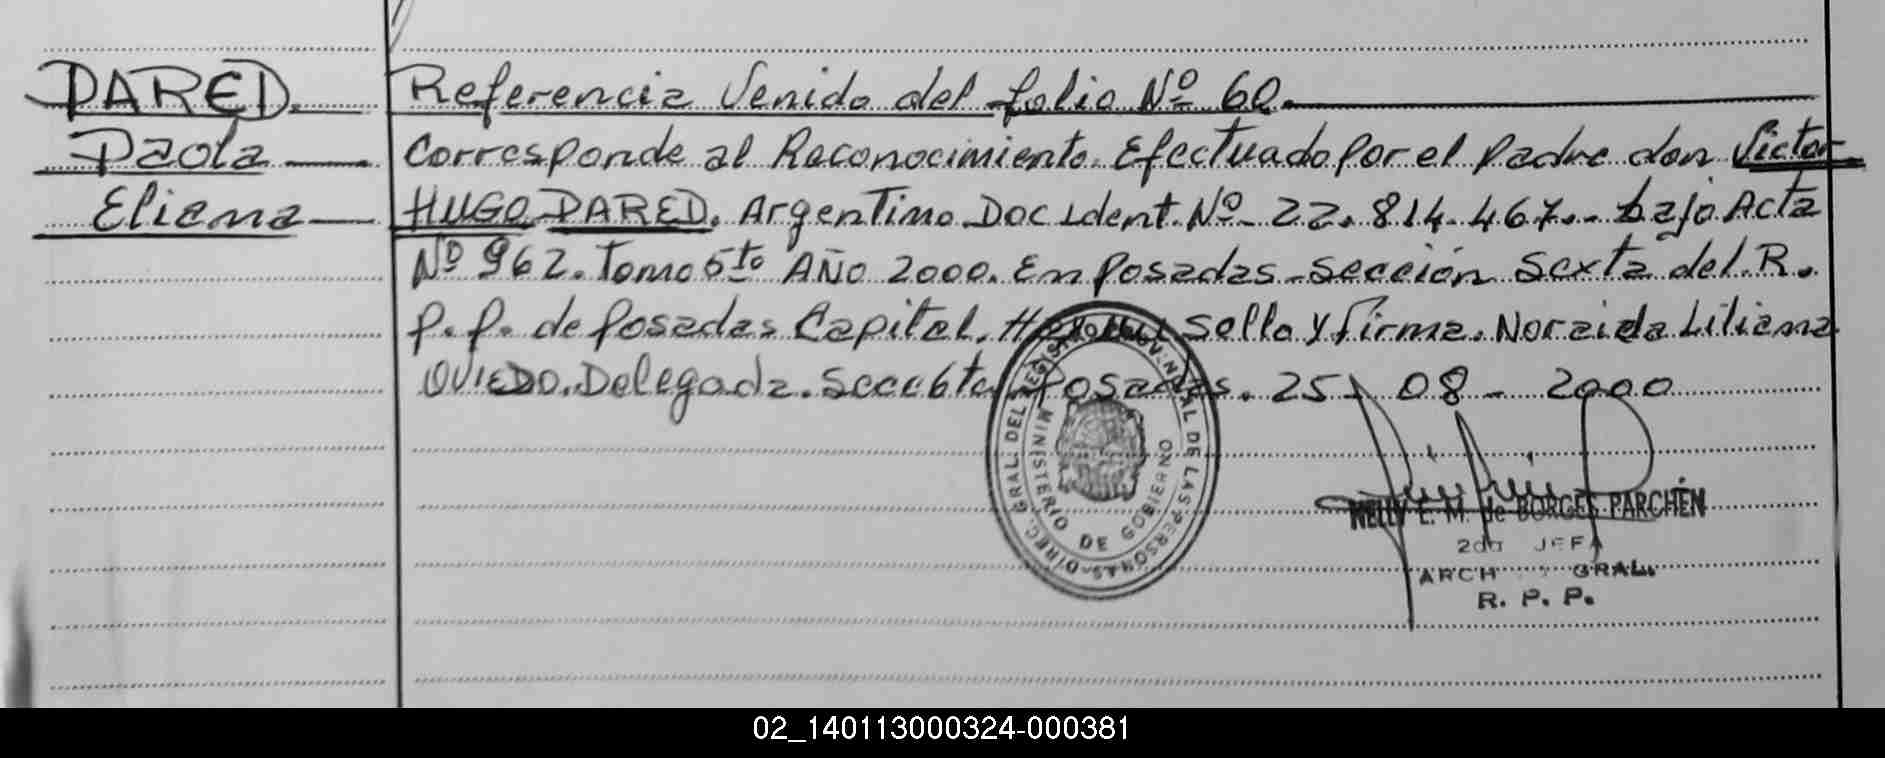 PARED. Referencia Venida del folio Nº 60.
Paola Corresponde al Reconocimiento. Efectuado por el padre don Victor
Eliana HUGO PARED. Argentino Doc Ident. Nº 22.814.467.- bajo Acta
Nº 962. Tomo 5to Año 2000. En Posadas - Sección Sexta del R.
P.P. de Posadas Capital. Hay un sello y firma. Noraida Liliana
OVIEDO. Delegada. Secc 6ta Posadas. 25 - 08 - 2000
DIREC. GRAL. DEL REGISTRO PROVINCIAL DE LAS PERSONAS
MINISTERIO DE GOBIERNO
NELLY E. M. de BORGES PARCHÉN
2da JEFA
ARCH GRAL.
R. P. P.
02_140113000324-000381